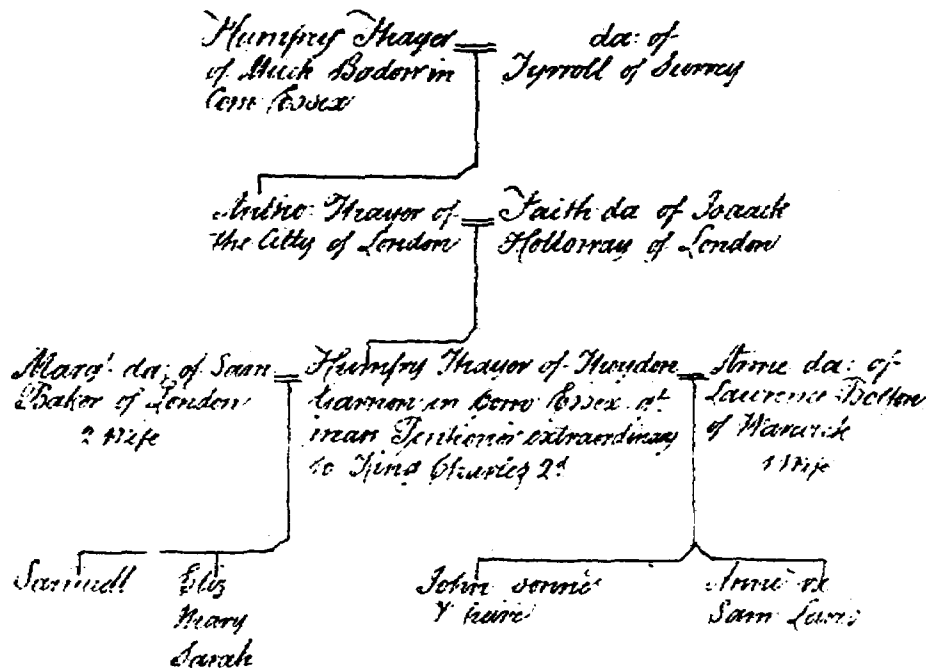 Humfry Thayer
of Much Badow in
Com Essex
da: of
Tyrroll of Surrey
Antho: Thayer of
the Citty of London
Faith da of Isaack
Holloway of London
Marg^t da: of Sam
Baker of London
2 Wife
Humfry Thayer of Thoydon
Garnon in Com Essex
man Pentioner extraordinary
to King Charles 2^d
Anne da: of
Laurence Bolton
of Warwick
1 Wife
Samuell
Eliz
Mary
Sarah
John sonne
Anne ux
Sam